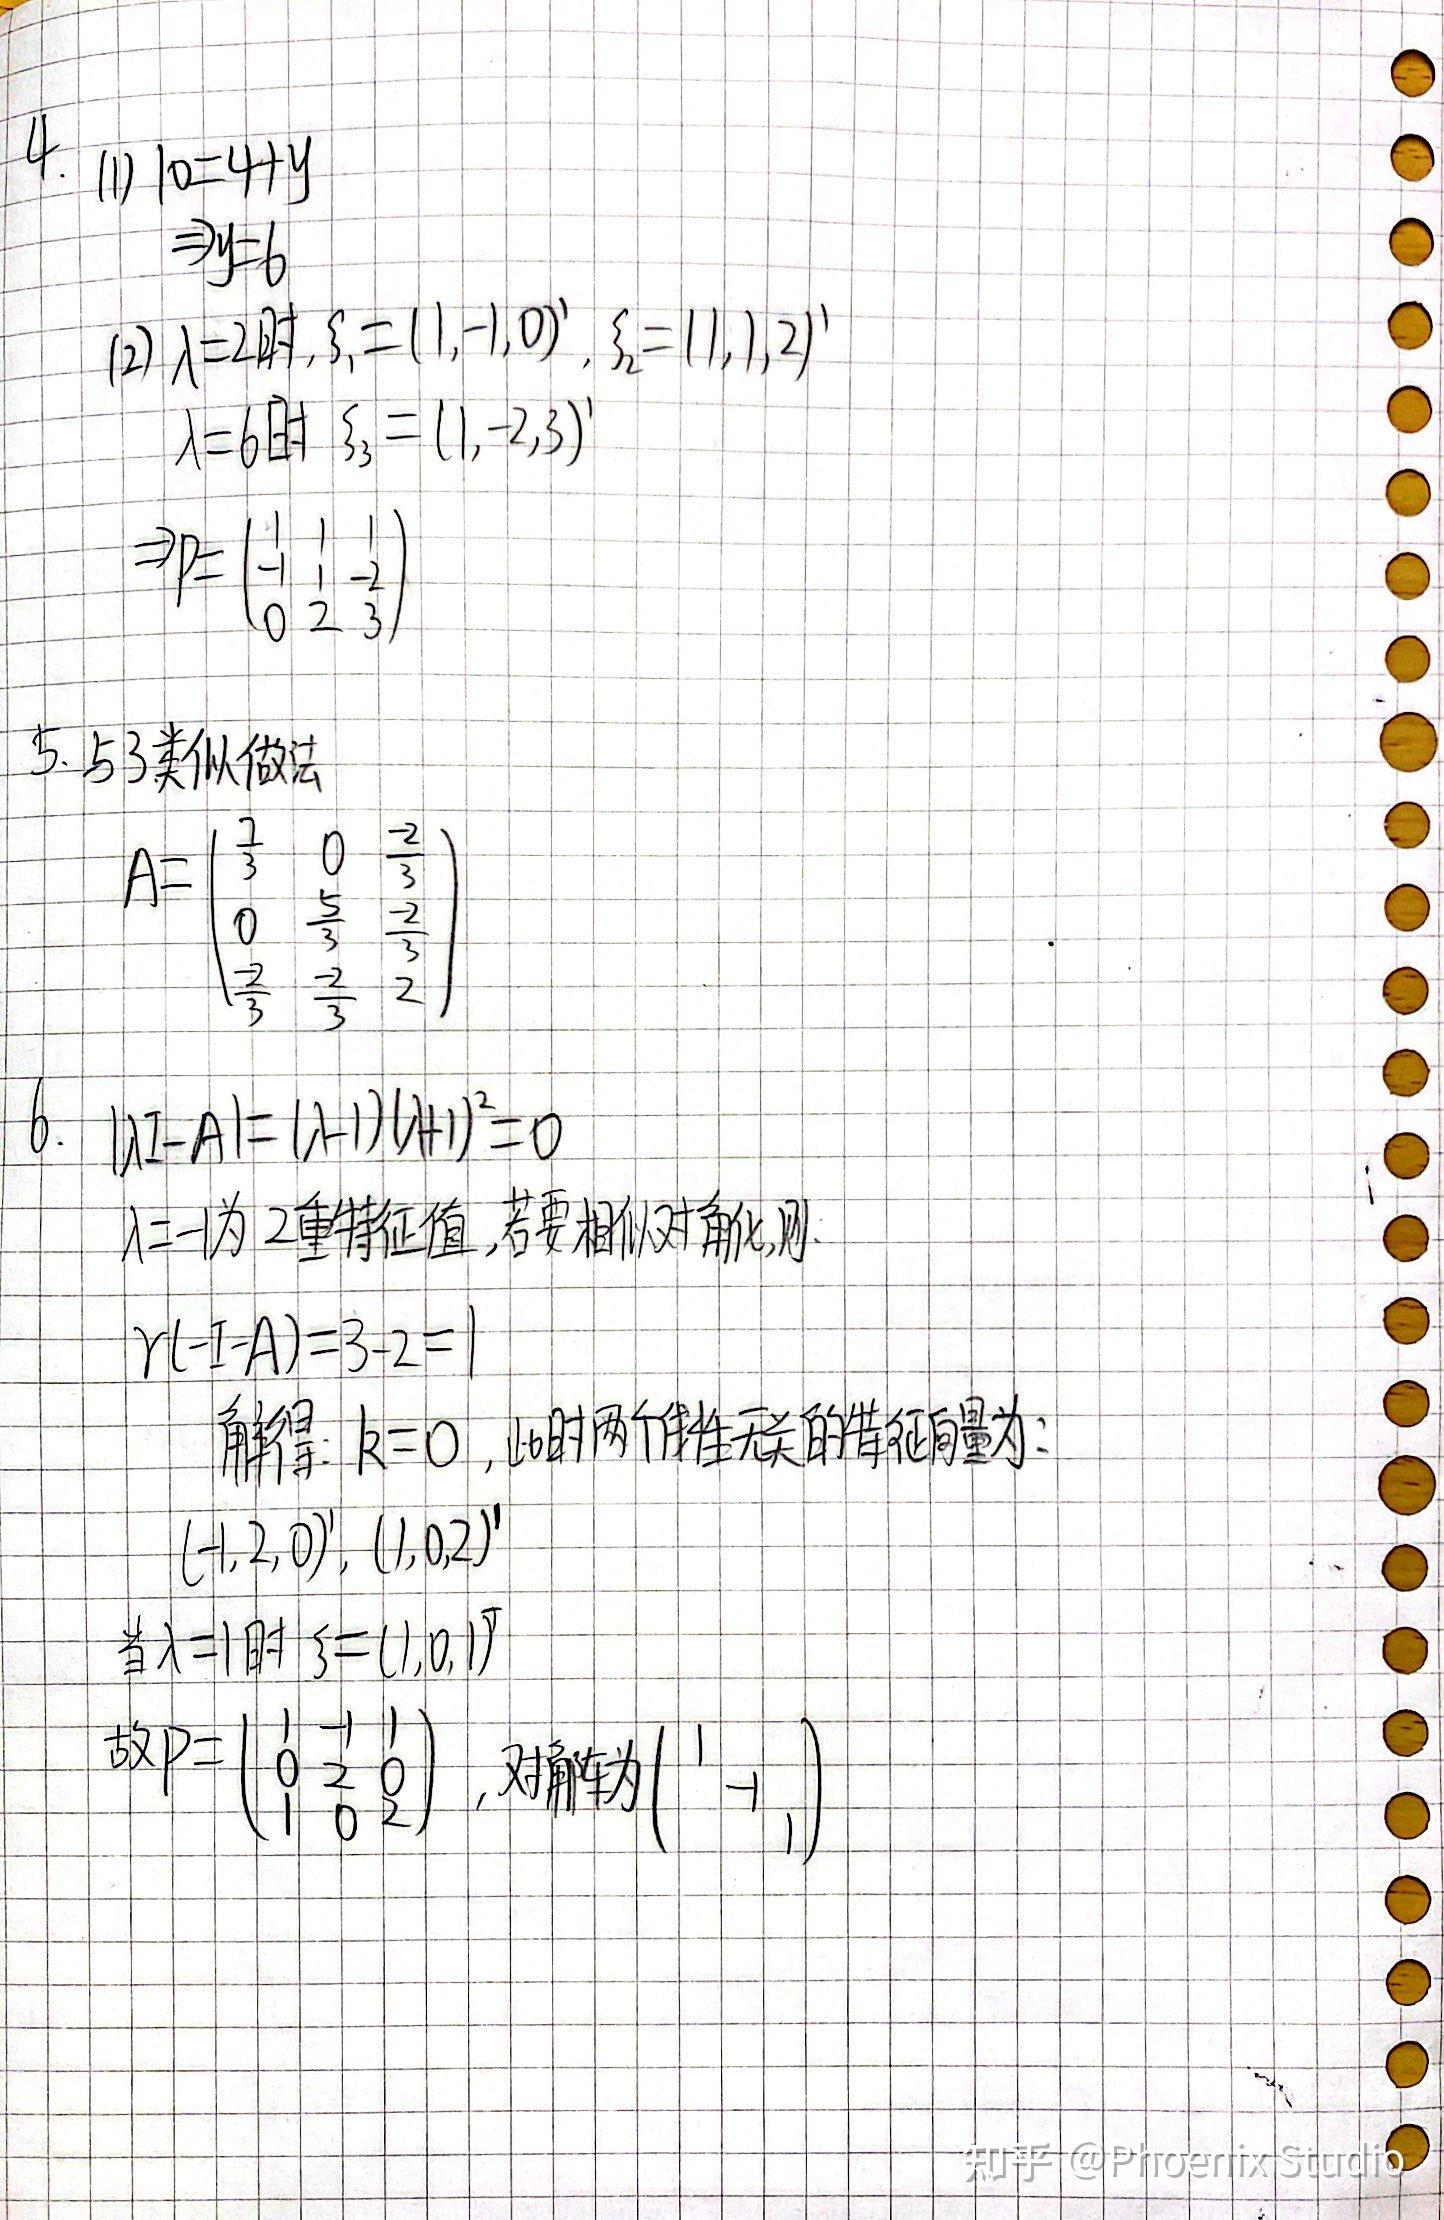 4. (1) 10=4+y
⇒y=6
(2) λ=2时, ξ₁=(1,-1,0)', ξ₂=(1,1,2)'
λ=6时 ξ₃=(1,-2,3)'
⇒P=
1 1 1
-1 1 -2
0 2 3
5. 与3类似做法
A=
7/3 0 -2/3
0 5/3 -2/3
-2/3 -2/3 2
6. |λI-A|=(λ-1)(λ+1)²=0
λ=-1为2重特征值,若要相似对角化,则:
r(-I-A)=3-2=1
解得: k=0, 此时两个线性无关的特征向量为:
(-1,2,0)', (1,0,2)'
当λ=1时 ξ=(1,0,1)ᵀ
故P=
1 -1 1
0 2 0
1 0 2
, 对角阵为
1
-1
1
知乎 @Phoenix Studio